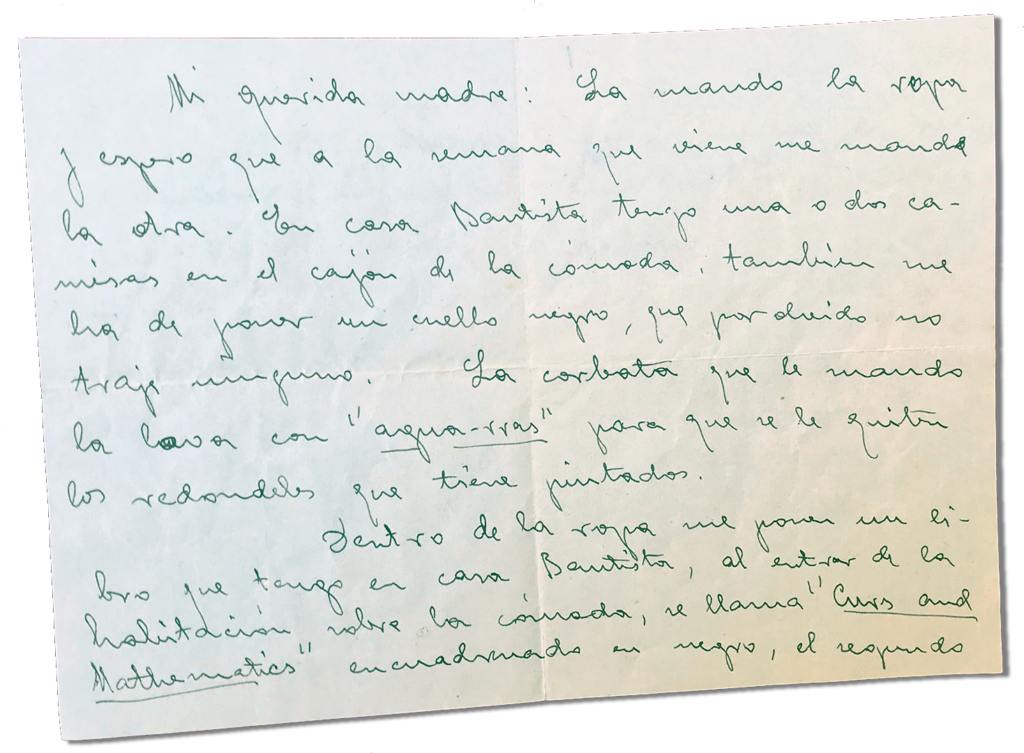 Mi querida madre: La mando la ropa
y espero que a la semana que viene me mande
la otra. En casa Bautista tengo una o dos ca-
misas en el cajón de la cómoda, también me
ha de poner un cuello negro, que por olvido no
traje ninguno. La corbata que le mando
la lava con "agua-rras" para que se le quiten
los redondeles que tiene pintados.
Dentro de la ropa me ponen un li-
bro que tengo en casa Bautista, al entrar de la
habitación, sobre la cómoda, se llama "Curs and
Mathematics" encuadernado en negro, el segundo